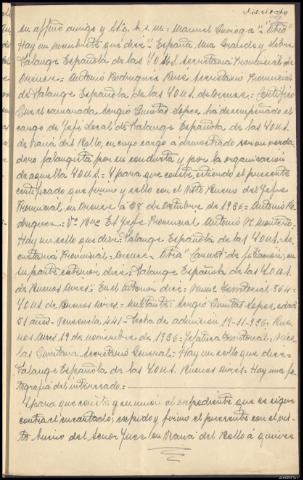 su affmo amigo y Stto. b. s. m.: Manuel Quiroga "Otro
Hay un membrete que dice: "España Una Grande y Libre
Falange Española de las J.O.N.S. Secretaría Provincial de
Orense: Antonio Rodríguez Secretario Provincial
de Falange Española de las J.O.N.S. de Orense: Certifico
Que el camarada Sergio Quintas Lopez, ha desempeñado el
cargo de Jefe local de Falange Española de las J.O.N.S.
de Viana del Bollo, en cuyo cargo a demostrado ser un verda
dero falangista, por su conducta y por la organización
de aquella J.O.N.S. Y para que conste, extiendo el presente
certificado que firmo y sello con el Visto Bueno del Jefe
Provincial, en Orense a 24 de Octubre de 1936: Antonio Ro
driguez: Vº Bno El Jefe Provincial Antonio
Hay un sello que dice: Falange Española de las J.O.N.S. Se
cretaría Provincial: Orense: Otro Carnet de Falange: en
su parte exterior dice: Falange Española de las J.O.N.S.
de Buenos Aires: En el interior dice: Territorial 364:
J.O.N.S. de Buenos Aires: militante Sergio Quintas Lopez, edad
31 años: Residencia 441: Fecha de admisión 19-11-936: Bue
nos Aires 19 de noviembre de 1936: Jefatura Territorial:
Secretario General: Hay un sello que dice:
Falange Española de las J.O.N.S. Buenos Aires: Hay una fo
tografía del interesado:
Y para que conste y su unión al expediente que se sigue
contra el encartado, expido y firmo el presente con el vis
to bueno del Señor Juez en Viana del Bollo a quince